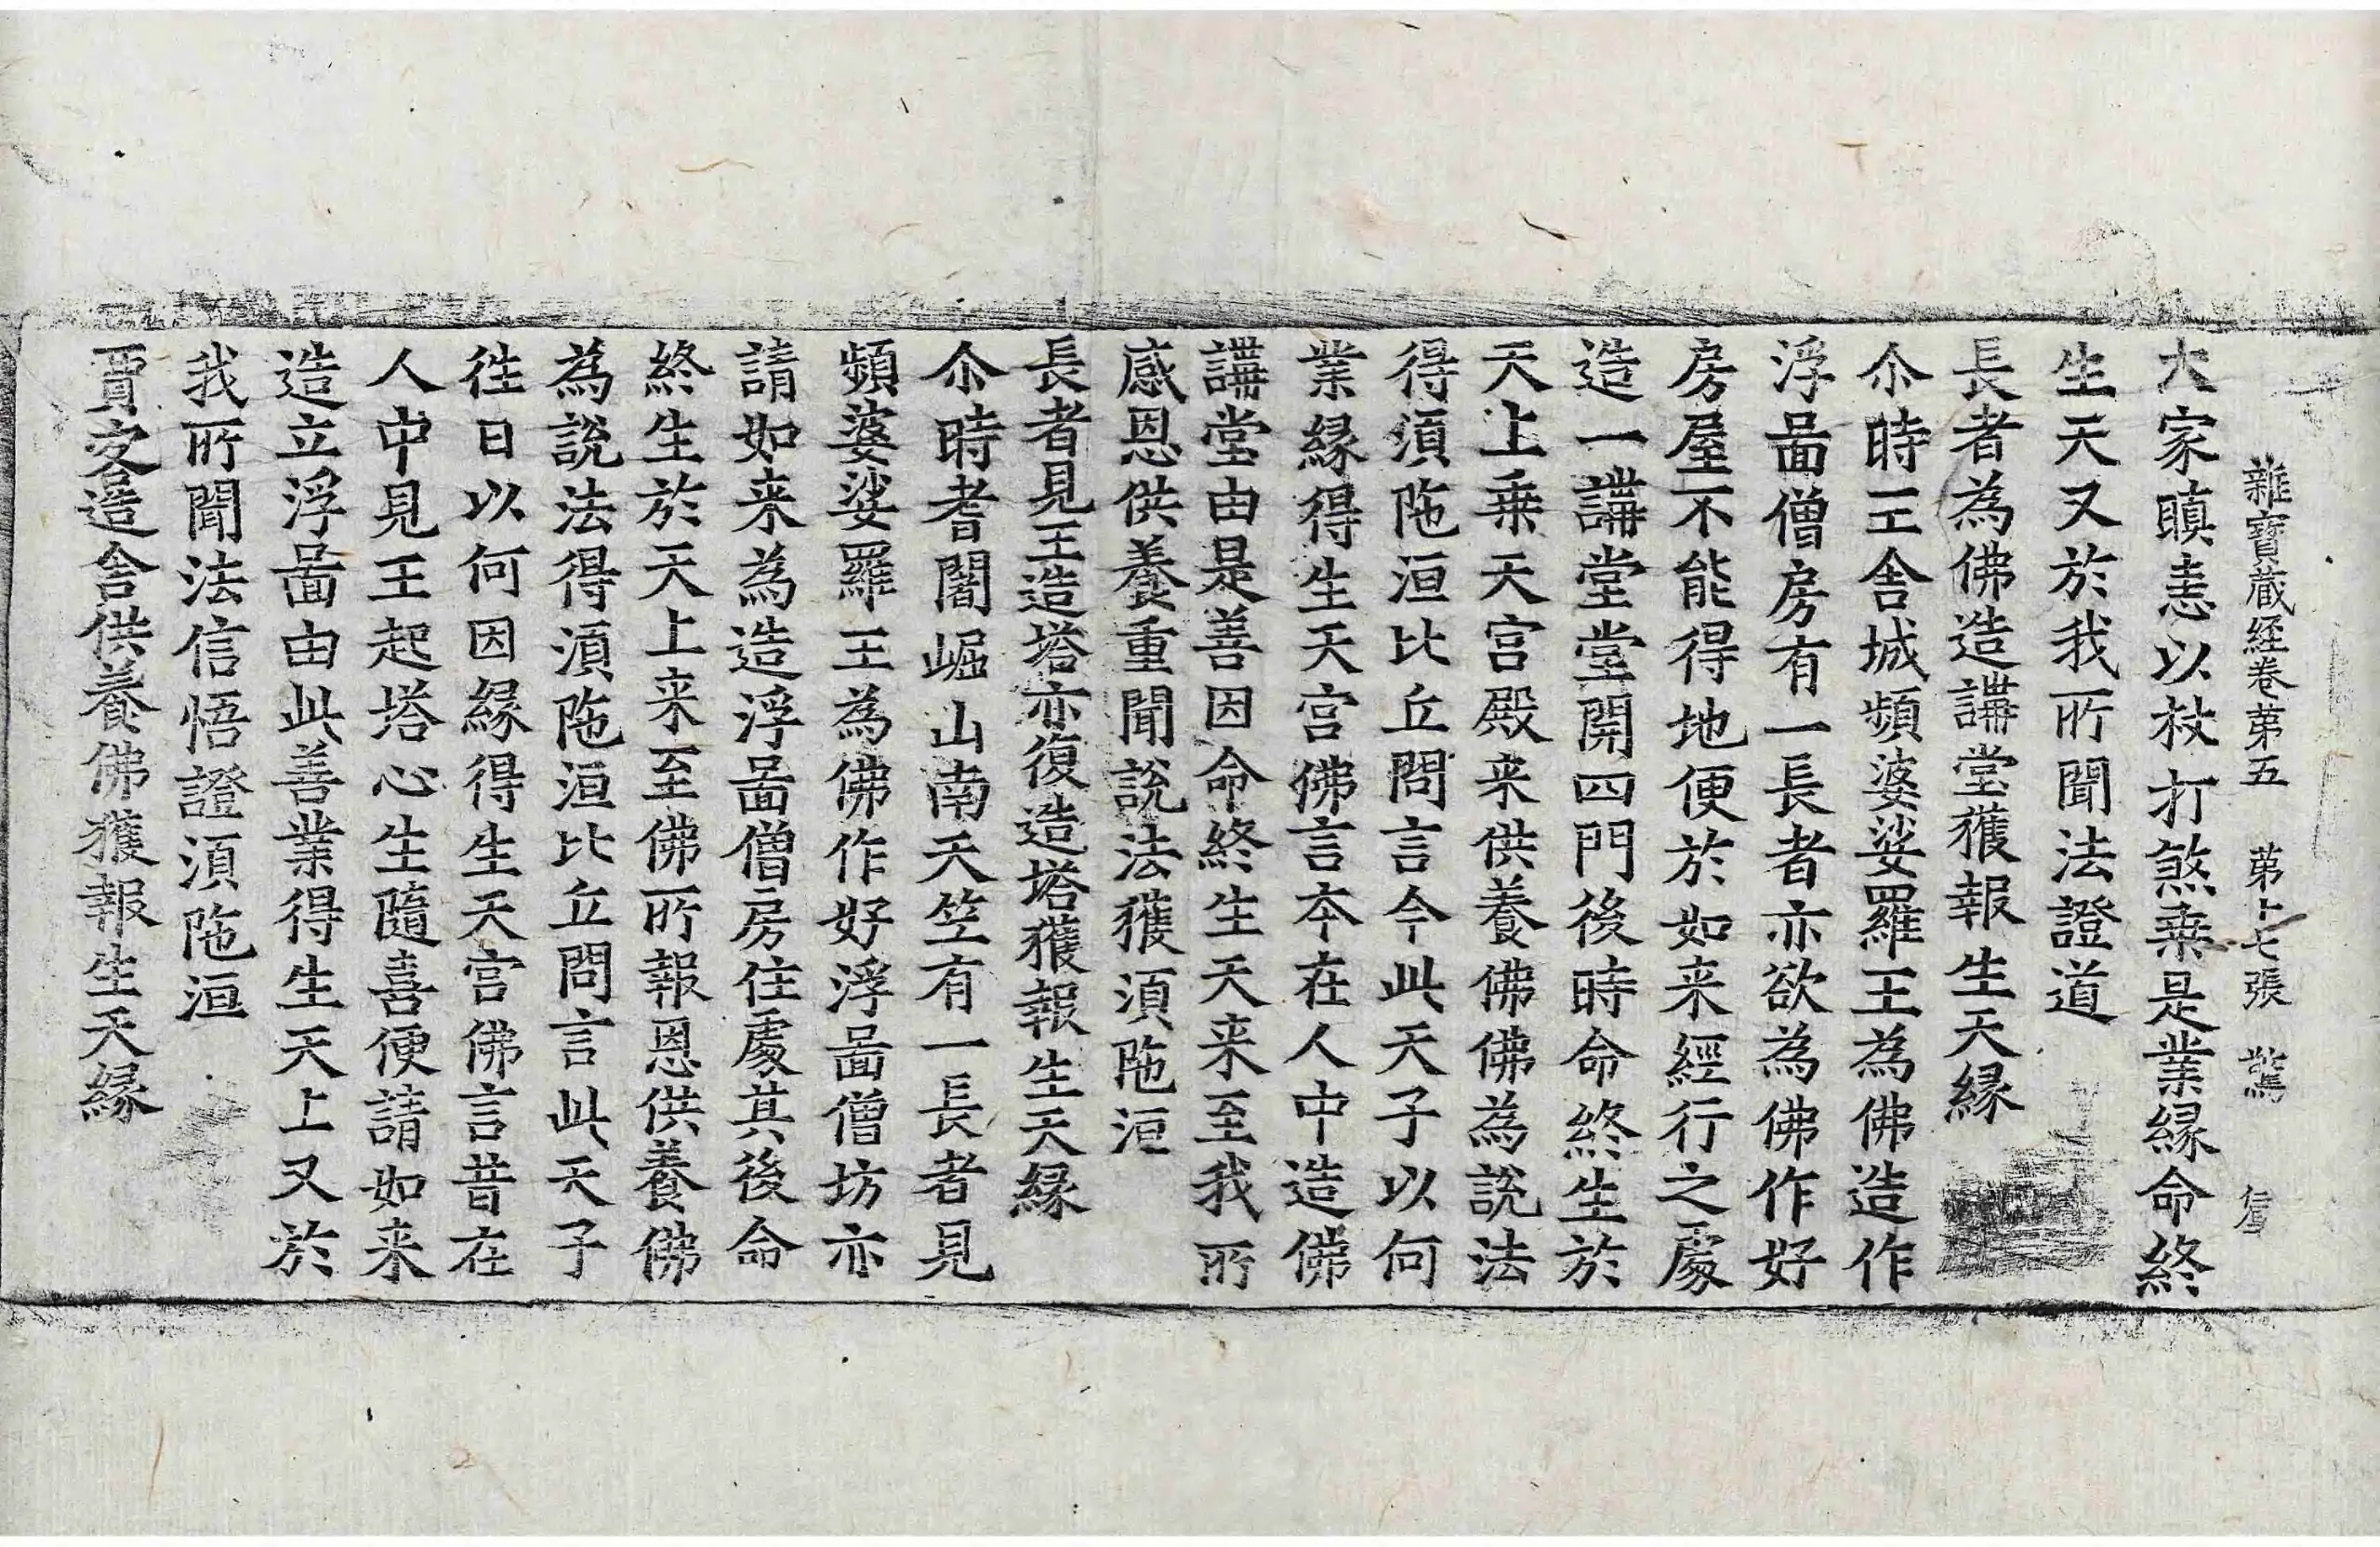 雜寶蔵経卷苐五 苐十七張 驚
大家瞋恚以杖打煞乗是業緣命終
生天又於我所聞法證道
長者為佛造講堂獲報生天緣
尒時王舎城頻婆娑羅王為佛造作
浮啚僧房有一長者亦欲為佛作好
房屋不能得地便於如来經行之處
造一講堂堂開四門後時命終生於
天上乗天宮殿来供養佛佛為說法
得湏陁洹比丘問言今此天子以何
業緣得生天宮佛言本在人中造佛
講堂由是善因命終生天来至我所
感恩供養重聞說法獲湏陁洹
長者見王造塔亦復造塔獲報生天緣
尒時耆闍崛山南天竺有一長者見
頻婆娑羅王為佛作好浮啚僧坊亦
請如来為造浮啚僧房住處其後命
終生於天上来至佛所報恩供養佛
為說法得湏陁洹比丘問言此天子
徃日以何因緣得生天宮佛言昔在
人中見王起塔心生隨喜便請如来
造立浮啚由此善業得生天上又於
我所聞法信悟證湏陁洹
賈客造舎供養佛獲報生天緣